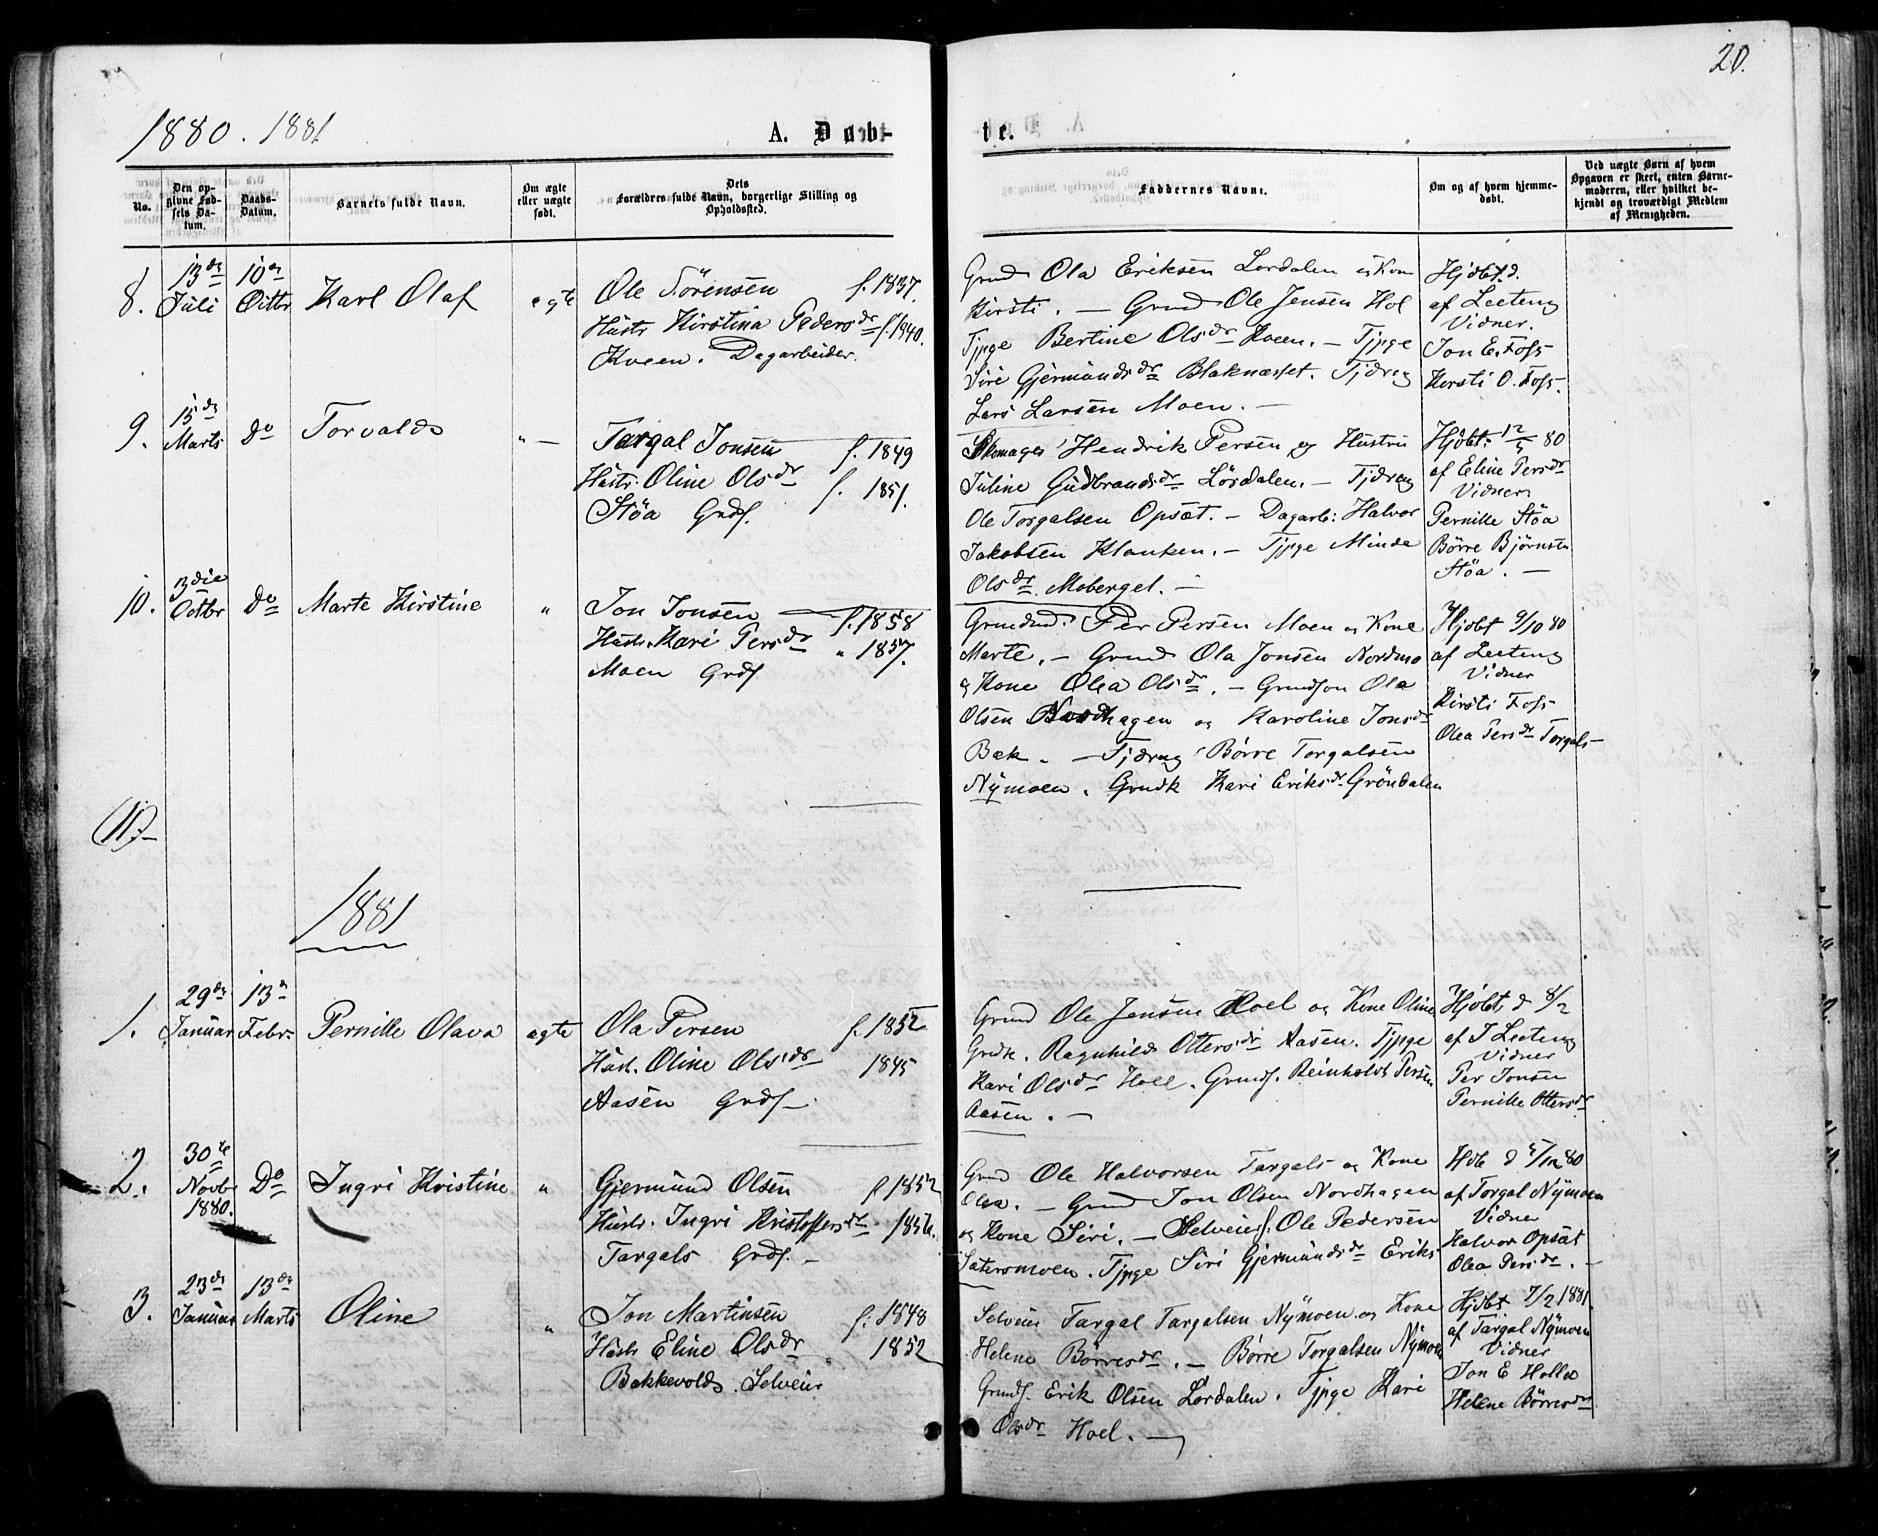 20.
1880. 1881
A. Døb-
te.
No.
Den opgivne Fødsels Datum.
Daabs-Datum.
Barnets fulde Navn.
Om ægte eller uægte født.
Dets Forældres fulde Navn, borgerlige Stilling og Opholdssted.
Faddernes Navne.
Om og af hvem hjemmedøbt.
Ved uægte Børn af hvem Opgaven er skeet, enten Barnemoderen, eller hvilket bekjendt og troværdigt Medlem af Menigheden.
8.
13de Juli
10de Octbr
Karl Olaf
egte
Ole Sörensen f. 1837.
Hustr Kirstina Pedersdr f. 1940.
Kveen. Dagarbeider.
Grund Ola Eriksen Lordalen og Kon
Kirsti. — Grund Ole Jensen Hol
Tjpge Bertine Olsdr Kveen. — Tjpge
Siri Gjermundsdr Blaknæsset. Tjdreng
Lars Larsen Moen. —
Hjdbt d.
af Leeteng
Vidner.
Jon E. Foss
Kersti O. Foss.
9.
15de Marts
Do
Torvald
" —
Targal Jonsen f. 1849
Hustr. Oline Olsdr f. 1851.
Stöa Grdf.
Skomager Hendrik Persen og Hustru
Juline Gudbrandsdr Lösdalen. — Tjdreng
Ole Torgalsen Opsæt. — Dagarb: Halvor
Jakobsen Klanken. — Tjpge Minda
Olsdr Moberget. —
Hjöbt. 12/5 80
af Eline Persdr
Vidner
Pernille Stöa
Börre Björnsen
Stöa. —
10.
3die Octbr
Do
Marte Kirstine
"
Jon Jonsen f. 1858
Hustr. Kari Persdr " 1857.
Moen Grdf
Grundmd. Per Persen Moen og Kone
Marte. — Grund Ola Jonsen Nordmo
og Kone Olea Olsdr. — Grundson Ole
Olsen Nordhagen og Karoline Jonsdr
Bæk. — Tjdreng Börre Torgalsen
Nÿmoen. Grudk Kari Eriksdr Gröndalen
Hjobt 9/10 80
af Leeteng
Vidner
Kirsti Foss
Olea Persdr Torgals—
1881
1.
29de Januar
13de Febr.
Pernille Olava
egte
Ola Persen f. 1852
Hust. Oline Olsdr 1845
Aasen Grdf —
Grund Ole Jensen Hoel og Kone Oline
Grdk. Ragnhild Ottersdr Aasen. Tjpge
Kari Olsdr Hoel. Grundf. Reinholdt Persen
Aasen. —
Hjöbt d 8/2
af J Leeteng
Vidner
Per Jonsen
Pernille Ottersdr
2.
30te Novbr 1880.
Do
Ingri Kristine
"
Gjermund Olsen f 1852
Hustr. Ingri Kristoffersdr 1856.
Targals Grdf. —
Grud Ole Halvorsen Targals og Kone
Olea. — Grud Jon Olsen Nordhagen
og Kone Siri. — Selveierf. Ole Pedersen
Sætersmoen. Tjpge Siri Gjermundsdr Eriks
Hdb d 5/12 80
af Torgal Nÿmoen
Vidner
Halvor Opsæt
Olea Persdr. —
3.
23de Januar
13de Marts
Oline
"
Jon Martinsen f. 1848
Hustr Eline Olsdr 1852
Bakkevolds. Selveier
Selveier Targal Targalsen Nÿmoen og Kone
Helene Börresdr. — Börre Torgalsen Nÿmoen
Grundf. Erik Olsen Lordalen. Tjpge Kari
Olsdr Hoel. —
Hjdbt 7/2 1881.
af Targal Nÿmoen
Vidner
Jon E Hollæ
Helene Börresdr